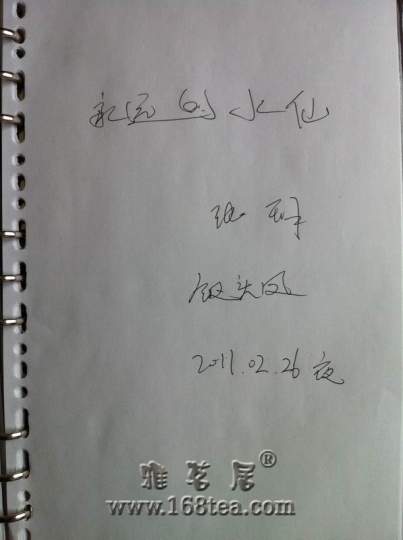 永远的水仙
钗头凤
2011.02.26夜
雅茗居®
www.168tea.com